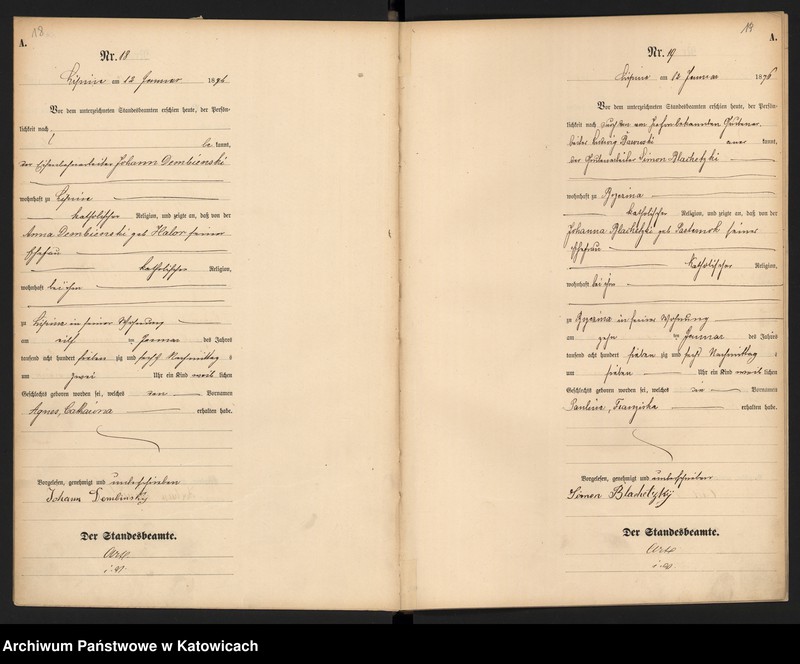 18.
A.
Nr. 18
Lipine am 12 Januar 1876
Vor dem unterzeichneten Standesbeamten erschien heute, der Persön-
lichkeit nach
be kannt,
der Johann Dembienski
wohnhaft zu Lipine
katholischer Religion, und zeigte an, daß von der
Anna Dembienski geb Kalor seiner
Ehefrau
katholischer Religion,
wohnhaft bei ihm
zu Lipine in seiner Wohnung
am eilf ten Januar des Jahres
tausend acht hundert sieben zig und sechs Nachmittag s
um zwei Uhr ein Kind weib lichen
Geschlechts geboren worden sei, welches den Vornamen
Agnes, erhalten habe.
Vorgelesen, genehmigt und unterschrieben
Johann Dembinsky
Der Standesbeamte.
i. V.
19
A.
Nr. 19
Lipine am 12 Januar 1876
Vor dem unterzeichneten Standesbeamten erschien heute, der Persön-
lichkeit nach durch den
kannt,
der Simon Blachetzki
wohnhaft zu
katholischer Religion, und zeigte an, daß von der
Johanna Blachetzki geb Pasternok seiner
Ehefrau
katholischer Religion,
wohnhaft bei ihm
zu in seiner Wohnung
am zehn ten Januar des Jahres
tausend acht hundert sieben zig und sechs Nachmittag s
um sieben Uhr ein Kind weib lichen
Geschlechts geboren worden sei, welches die Vornamen
Pauline, Franziska erhalten habe.
Vorgelesen, genehmigt und unterschrieben
Simon Blachetzky
Der Standesbeamte.
i. V.
Archiwum Państwowe w Katowicach